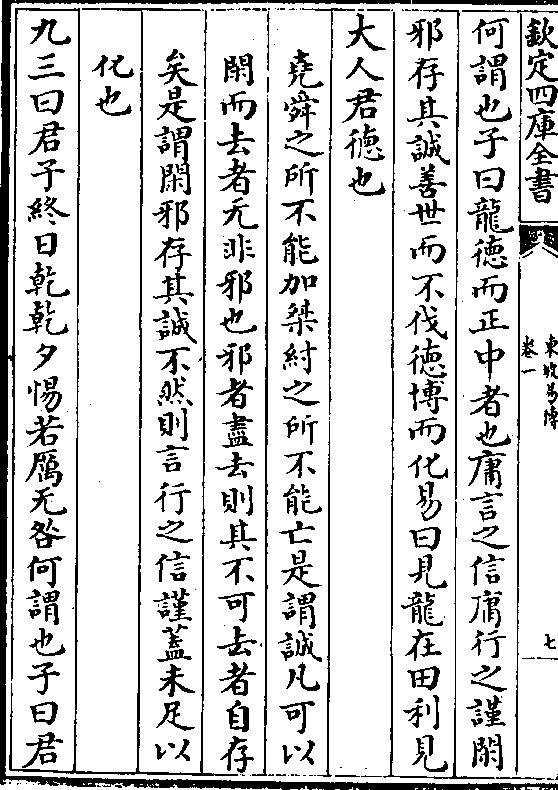 欽定四庫全書
東坡易傳
卷一
七
何謂也子曰龍德而正中者也庸言之信庸行之謹閑
邪存其誠善世而不伐德博而化易曰見龍在田利見
大人君德也
堯舜之所不能加桀紂之所不能亡是謂誠凡可以
閑而去者无非邪也邪者盡去則其不可去者自存
矣是謂閑邪存其誠不然則言行之信謹蓋未足以
化也
九三曰君子終日乾乾夕惕若厲无咎何謂也子曰君